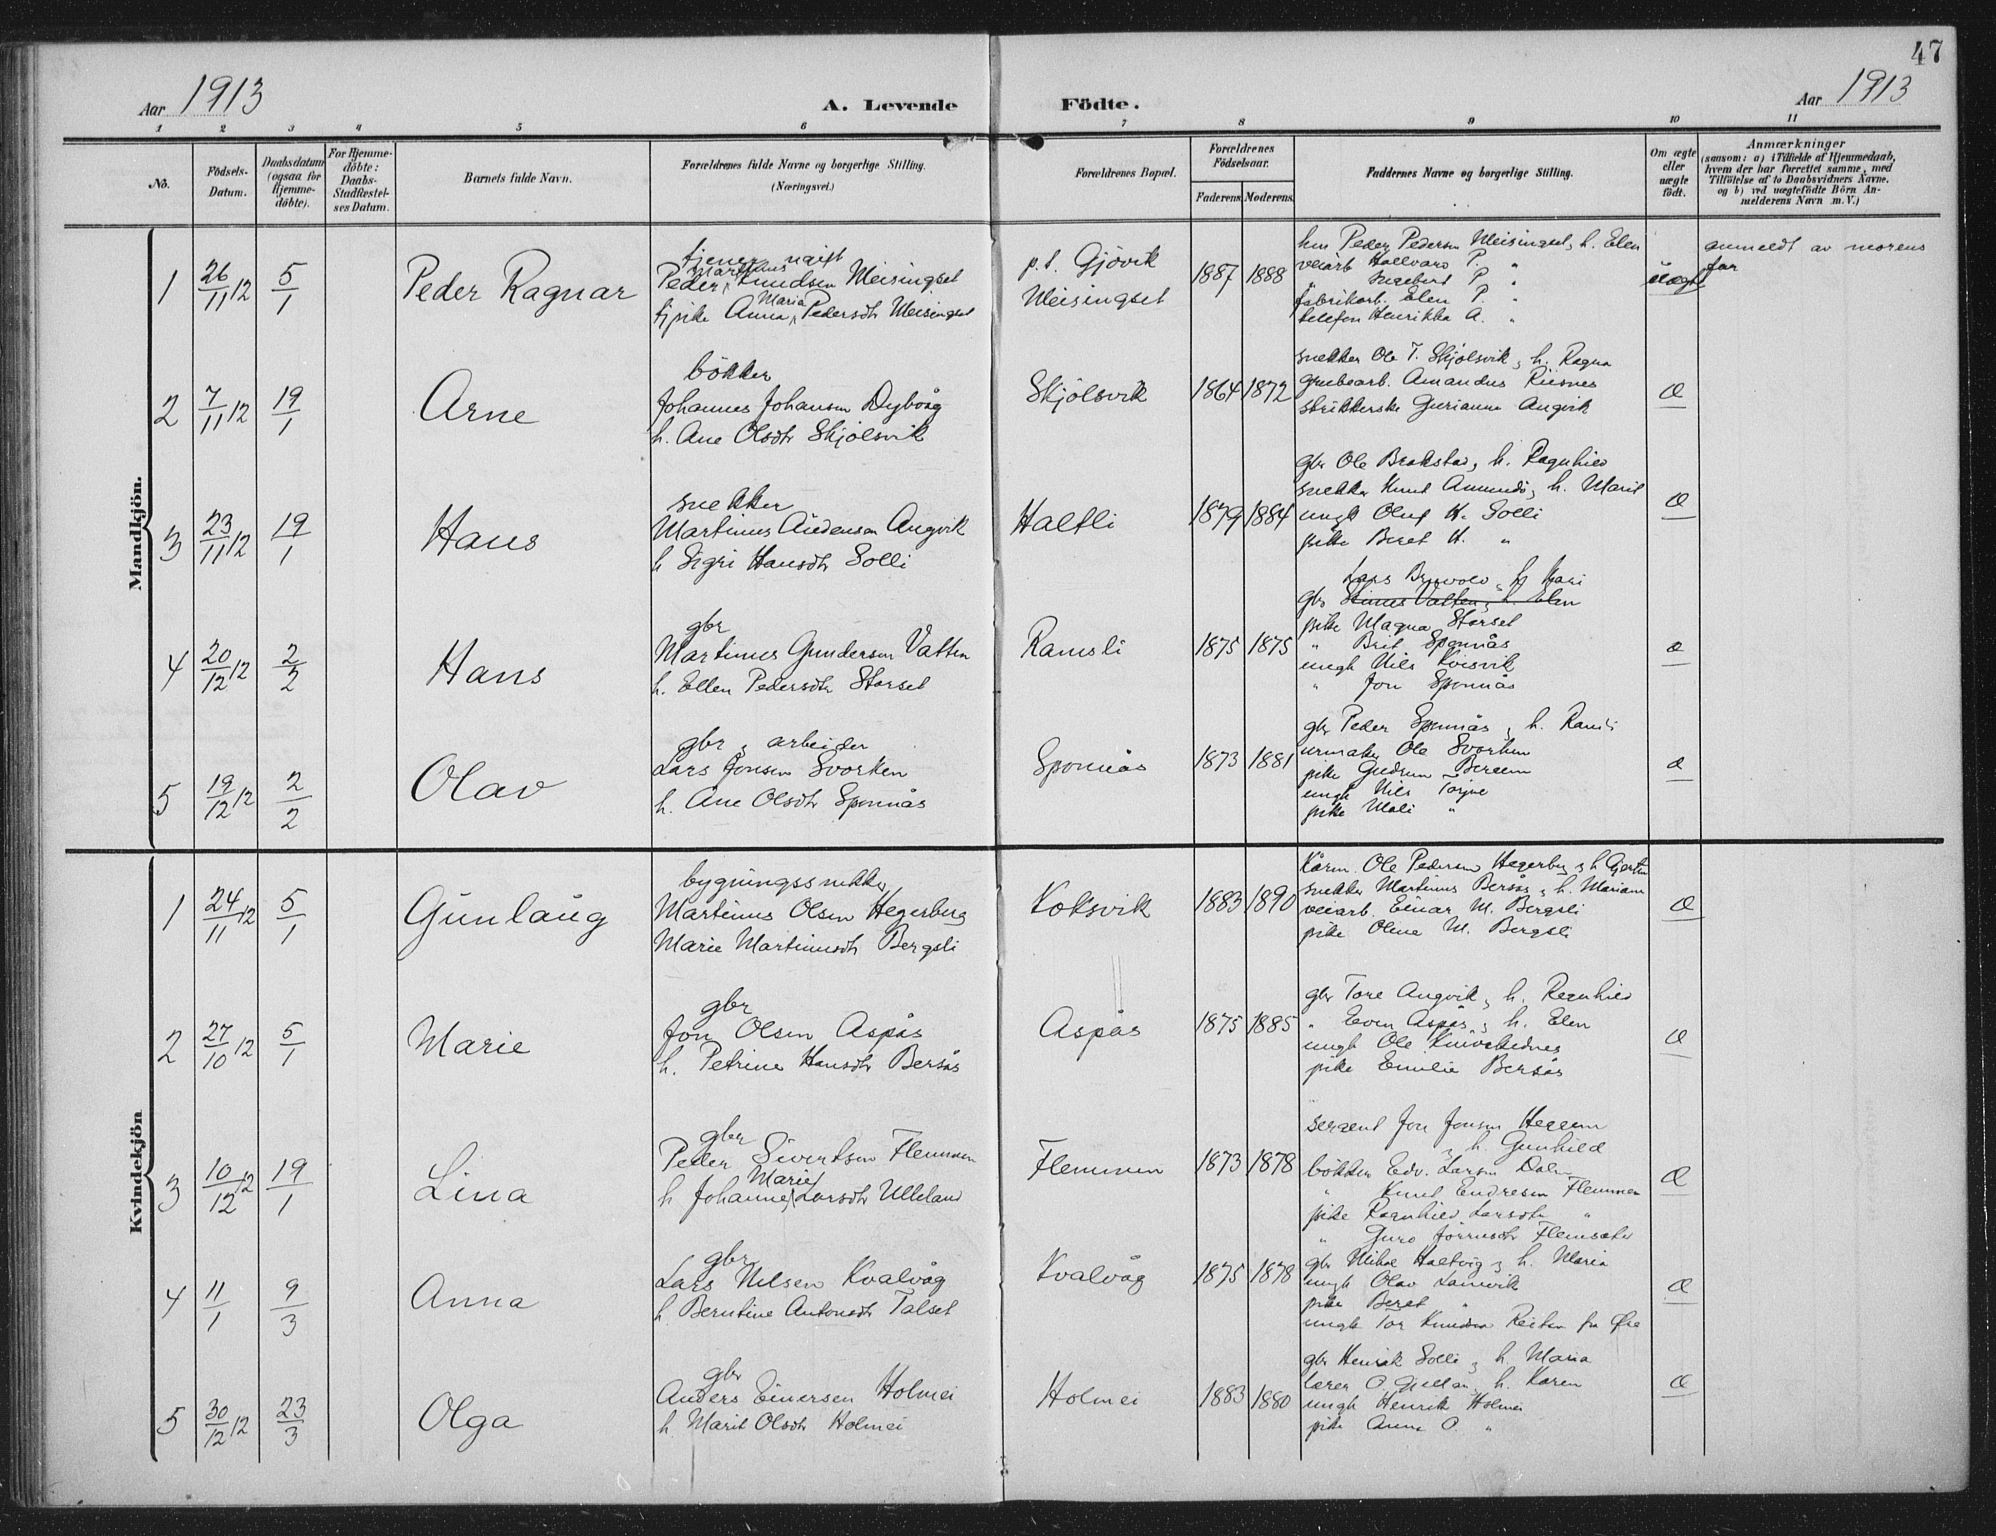 47
Aar 1913
A. Levende Födte.
Aar 1913
1 2 3 4 5 6 7 8 9 10 11
No.
Födsels-Datum.
Daabsdatum (ogsaa for Hjemme-döbte).
For Hjemme-döbte: Daabs-Stadfæstel-ses Datum.
Barnets fulde Navn.
Forældrenes fulde Navne og borgerlige Stilling.
(Næringsvei.)
Forældrenes Bopæl.
Forældrenes Födselsaar.
Faderens. Moderens.
Faddernes Navne og borgerlige Stilling.
Om ægte eller uægte födt.
Anmærkninger
(saasom: a) i Tilfælde af Hjemmedaab,
hvem der har forrettet samme, med
Tilföielse af to Daabsvidners Navne,
og b) ved uægtefödte Börn An-
melderens Navn m. V.)
Mandkjön.
1 26/11 12 5/1 Peder Ragnar
tjener ugift
Peder Martinus Knudsen Meisingset
tjpike Anna Maria Pedersdtr Meisingset
p.t. Gjövik
Meisingset
1887 1888
hm Peder Pedersen Meisingset, h. Elen
veiarb Hallvard P. "
" Ingebert P. "
fabrikarb. Elen P. "
telefon Henrikka A. "
uægt
anmeldt av morens
far
2 7/11 12 19/1 Arne
bökker
Johannes Johansen Dyvåg
h. Ane Olsdtr Skjölsvik
Skjölsvik
1864 1872
snekker Ole T. Skjölsvik, h. Ragna
grubearb. Amandus Risnes
strikkerske Gurianna Angvik
Æ
3 23/11 12 19/1 Hans
snekker
Martinus Andersen Angvik
h Sigri Hansdtr Solli
Haltli
1879 1884
gbr Ole Brakstad, h. Ragnhild
snekker Knut Amundö, h. Marit
ungk Oluf H. Solli
pike Beret H. "
Æ
4 20/12 12 2/2 Hans
gbr
Martinus Gundersen Vatten
h. Ellen Pedersdtr Storset
Ramsli
1875 1875
Lars h Kari
gbr Vatten, h. Elen
pike Magna Storset
" Brit Sponnås
ungk Nils Koisvik
" Jon Sponnås
æ
5 19/12 12 2/2 Olav
gbr & arbeider
Lars Jonsen Svorken
h. Ane Olsdtr Sponnås
Sponnås
1873 1881
gbr Peder Sponnås, h. Randi
urmaker Ole Svorken
pike Gudrun Bergem
ungk Nils Torjul
pike Mali "
æ
Kvindekjön
1 24/11 12 5/1 Gunlaug
bygningssnekker
Martinus Olsen Hegerberg
Marie Martinusdtr Bergsli
Koksvik
1883 1890
Kårm. Ole Pedersen Hegerberg & h Gjertine
snekker Martinus Bersås, h. Mariane
veiarb. Einar M. Bergsli
pike Oline M. Bergsli
Æ
2 27/10 12 5/1 Marie
gbr
Jon Olsen Aspås
h. Petrine Hansdtr Bersås
Aspås
1875 1885
gbr Tore Angvik, h. Ragnhild
" Even Aspås, h. Elen
ungk Ole
pike Emilie Bersås
Æ
3 10/12 12 19/1 Lina
gbr
Peder Sivertsen Flemmen
h Johanne Marie Larsdtr Ulleland
Flemmen
1873 1878
sergent Jon Jonsen Heggem
& h. Gunhild
bökker Edv. Larsen Dale
" Knut Endresen Flemmen
pike Ragnhild Larsdtr "
" Guro Jörnsdtr Flemsæter
Æ
4 11/1 9/3 Anna
gbr
Lars Nilsen Kvalvåg
h Berntine Antonsdtr Talset
Kvalvåg
1875 1878
gbr Mikal Haltvig & h. Maria
ungk Olav Lamvik
pike Beret "
ungk Tor Knudsen Reiten fra Öre
Æ
5 30/12 12 23/3 Olga
gbr
Anders Einersen Holmei
h. Marit Olsdtr Holmei
Holmei
1883 1880
gbr Henrik Solli & h. Maria
lærer O. Gjeldan, h. Karen
ungk Henrik Holmei
pike Anna O. "
Æ